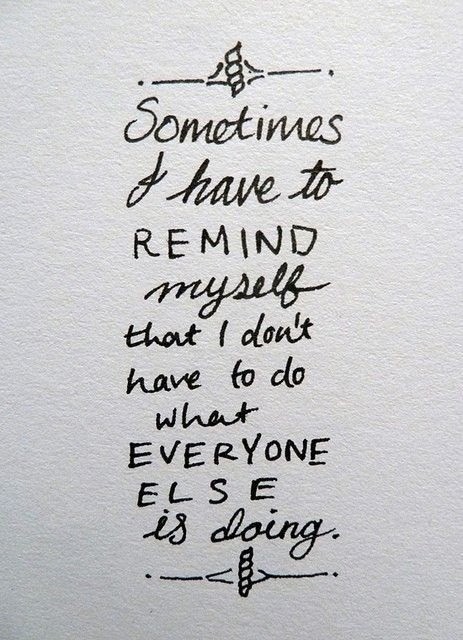 Sometimes
I have to
REMIND
myself
that I don't
have to do
what
EVERYONE
ELSE
is doing.